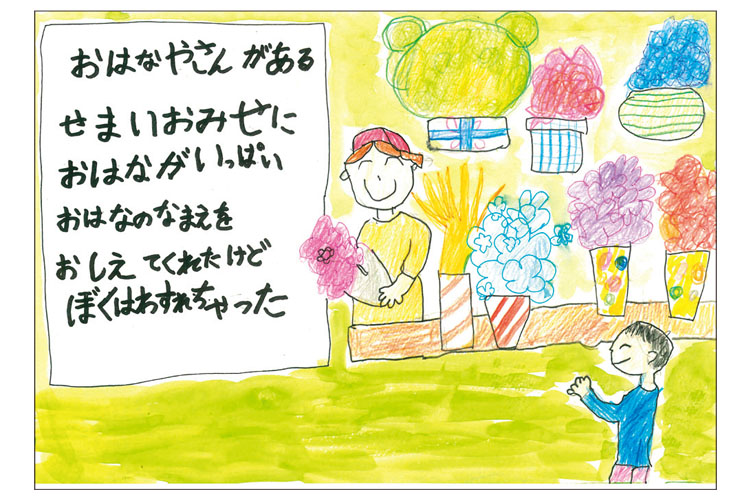 おはなやさんがある
せまいおみせに
おはながいっぱい
おはなのなまえを
おしえてくれたけど
ぼくはわすれちゃった